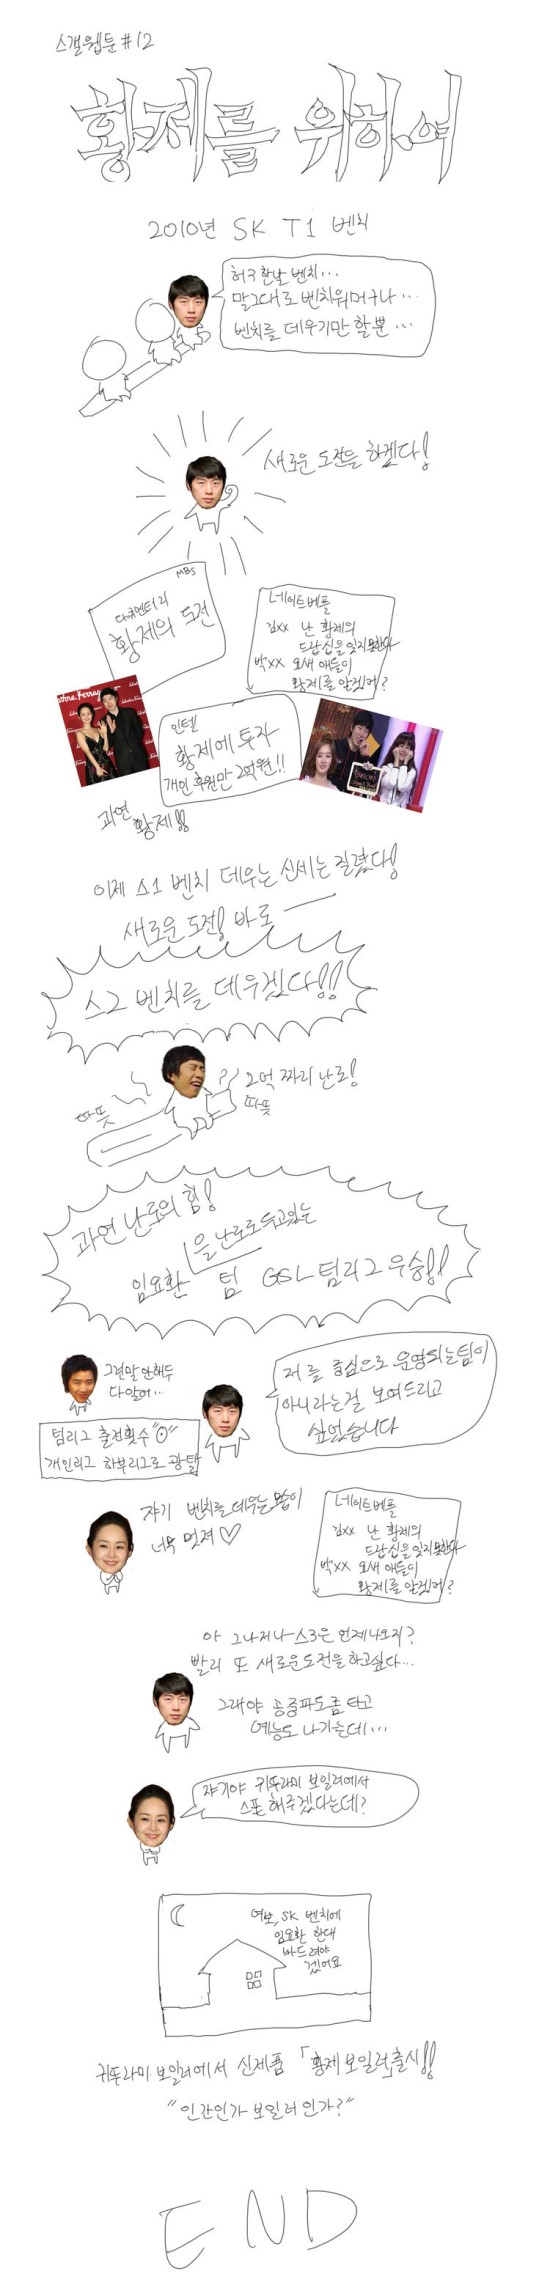 스갤웹툰 #12
황제를 위하여
2010년 SK T1 벤치
허구한날 벤치...
말그대로 벤치워머구나...
벤치를 데우기만 할뿐...
새로운 도전을 하겠다!
MBS
다큐멘터리
황제의 도전
네이트베플
김xx 난 황제의
드랍쉽을 잊지못한다
박xx 요새 애들이
황제를 알겠어?
인텔
황제에 투자
개인 후원만 2억원!!
과연
황제!!
이제 스1 벤치 데우는 신세는 질렸다!
새로운 도전! 바로
스2 벤치를 데우겠다!!
2억 짜리 난로!
따뜻
따뜻
과연 난로의 힘!
을 난로로 두고있는
임요환 팀 GSL 팀리그 우승!!
그런말 안해두
다알어...
저를 중심으로 운영되는팀이
아니라는걸 보여드리고
싶었습니다
팀리그 출전횟수 "0"
개인리그 하부리그로 광탈
쟈기 벤치를 데우는 모습이
너무 멋져♡
네이트베플
김xx 난 황제의
드랍쉽을 잊지못한다
박xx 요새 애들이
황제를 알겠어?
아 그나저나 스3은 언제나오지?
빨리 또 새로운도전을 하고싶다...
그래야 공중파도좀 타고
예능도 나가는데...
쟈기야 귀뚜라미 보일러에서
스폰 해주겠다는데?
여보, SK 벤치에
임요환 한대
놔드려야
겠어요
귀뚜라미 보일러에서 신제품 「황제 보일러」출시!!
"인간인가 보일러 인가?"
END